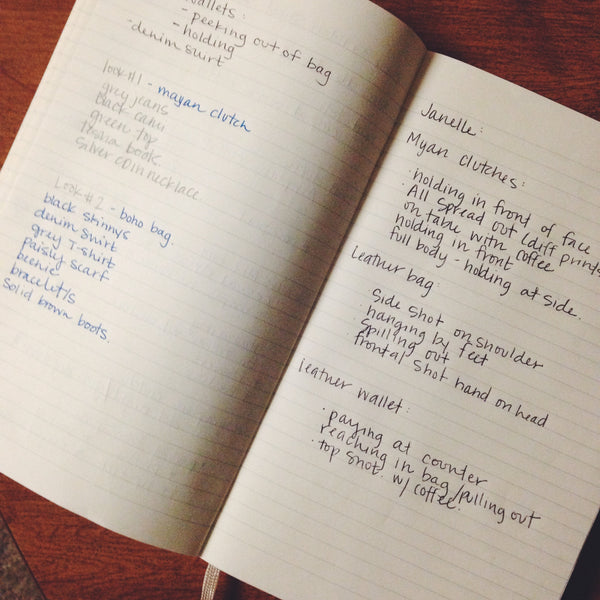 wallets:
- peeking out of bag
- holding
- denim shirt
look #1 - mayan clutch
grey jeans
black cami
green top
book
silver coin necklace
Look #2 - boho bag.
black skinnys
denim shirt
grey T-shirt
paisly scarf
beenie
bracelet/s
solid brown boots.
Janelle:
Myan Clutches:
· holding in front of face
· All spread out (diff prints)
on table with coffee
· holding in front
· full body - holding at side.
Leather bag:
· Side shot on shoulder
· hanging by feet
· spilling out
· frontal shot hand on head
leather wallet:
· paying at counter
· reaching in bag/pulling out
· top shot w/ coffee.